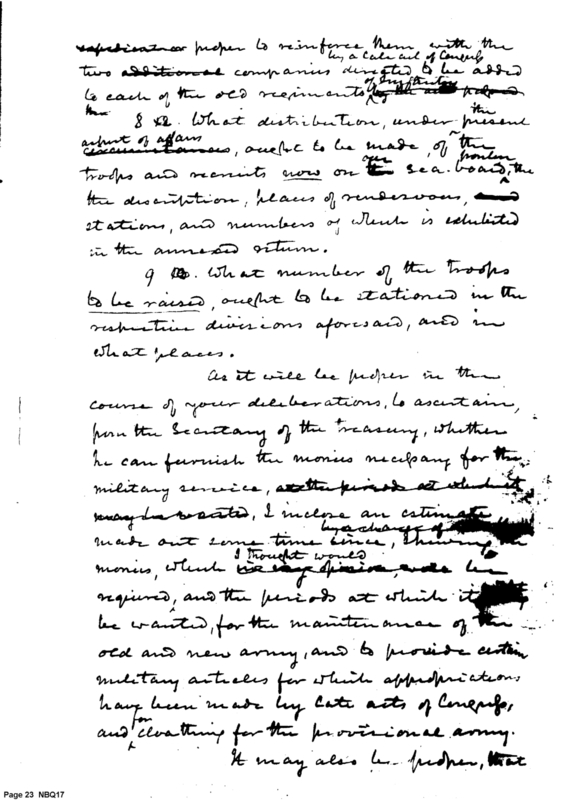 expedient or proper to reinforce them with the
by a late act of Congress
two additional companies directed to be added
of Infantry
to each of the old regiments
8 What distribution, under the present
aspect of affairs
circumstances, ought to be made, of the
our frontier
troops and recruits now on the sea-board, the
the discription, places of rendezvous, and
stations, and numbers of which is exhibited
in the annexed return.
9 What number of the troops
to be raised, ought to be stationed in the
respective divisions aforesaid, and in
what places.
As it will be proper in the
course of your deliberations, to ascertain,
from the Secretary of the Treasury, whether
he can furnish the monies necessary for the
military service, at the periods at which it
may be wanted, I inclose an estimate
made out some time since, shewing the
I thought would
monies, which in my opinion, will be
required, and the periods at which it
be wanted, for the maintenance of the
old and new army, and to provide certain
military articles for which appropriations
have been made by late acts of Congress,
for
and cloathing for the provisional army.
It may also be proper, that
Page 23 NBQ17